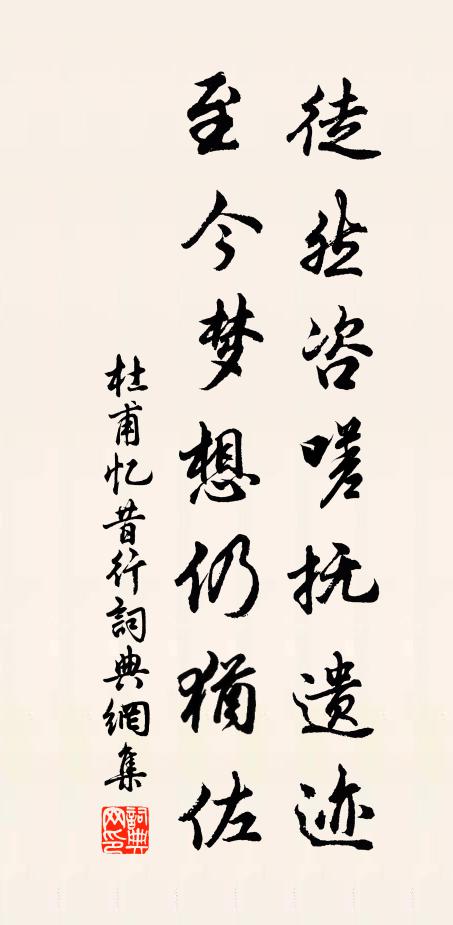 徒然咨嗟抚遗迹
至今梦想仍犹佐
杜甫忆昔行詞典網集
詞典網印